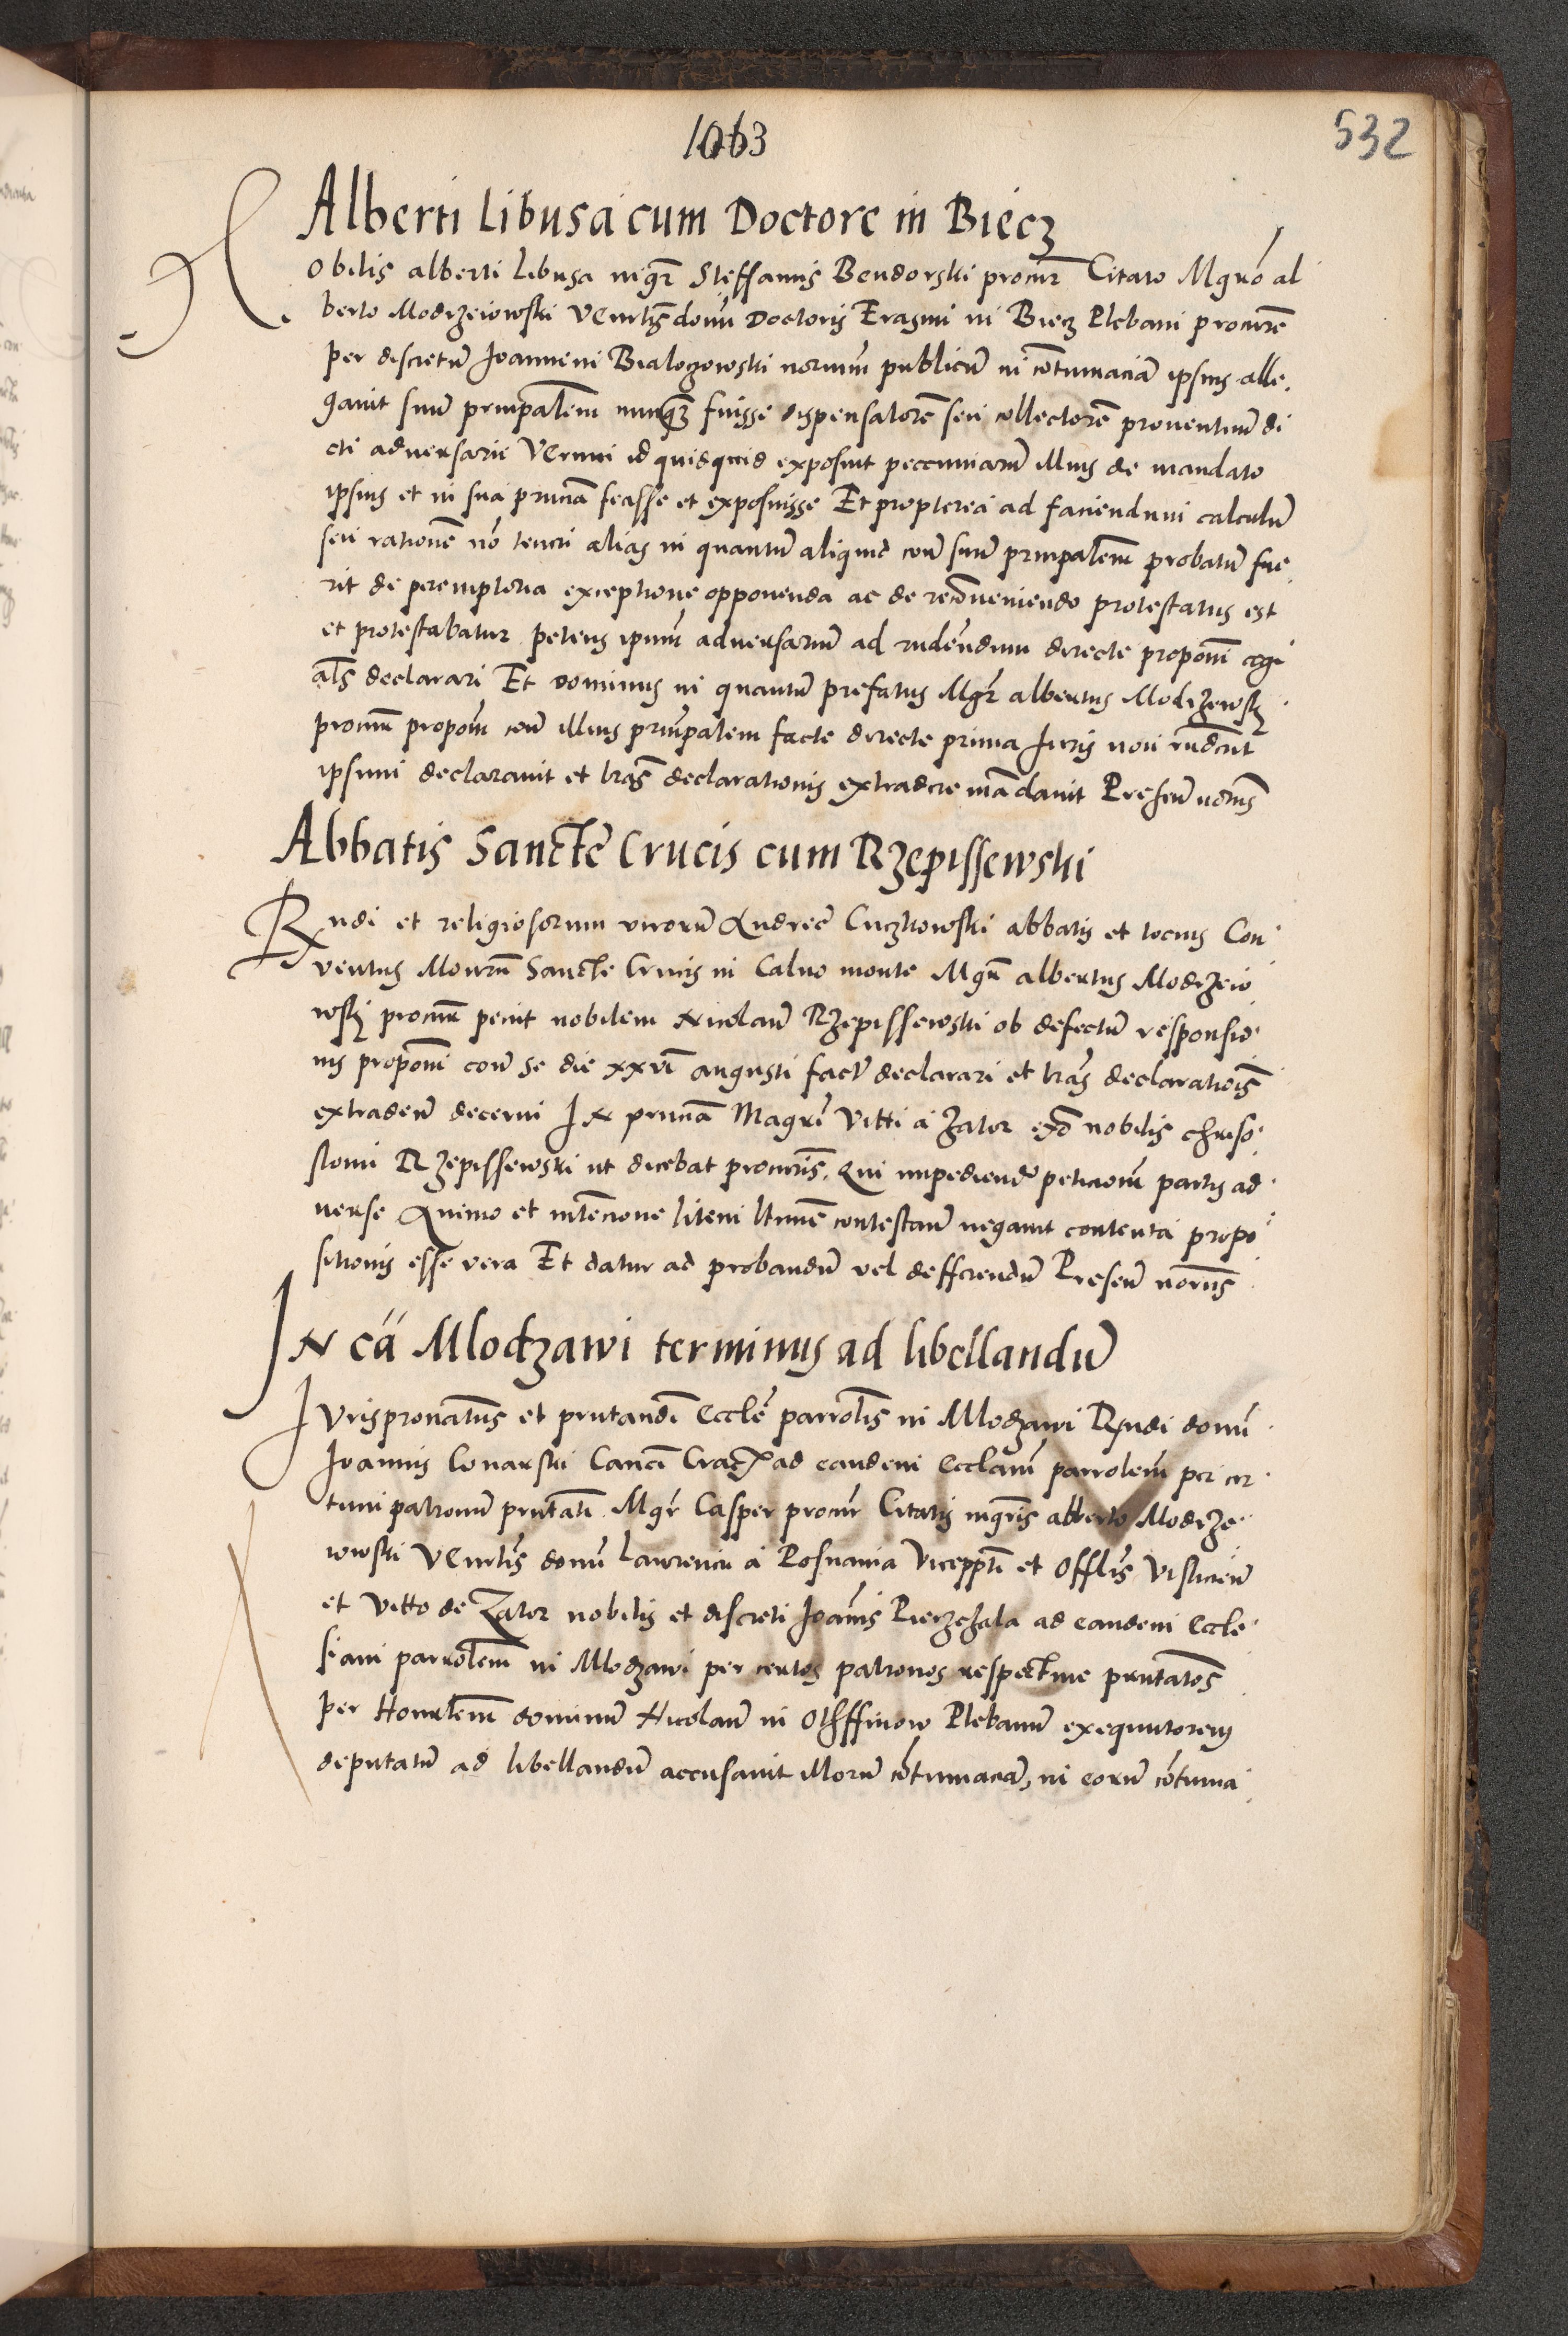 1063
532
Alberti Libusa cum Doctore in Biecz
Nobilis alberti Libusa mgr Steffanus Bendorski procur Citato Mgro al
berto Modrzeiowski Venrlis domi Doctoris Erasmi in Biecz Plebani procure
per discretum Joannem Bialogowski notrium publicum in contumaciam ipsius alle
gavit suum prinpalem nunq fuisse dispensatorem seu collectorem proventuum di
cti adversarii Verum id quidquid exposuit peccuniarum illius de mandato
ipsius et in sua prncia fecisse et exposuisse Et propterea ad faciendum calculum
seu rationem no teneri alias in quantum aliquid con suum prinpalem probatum fue
rit de peremptoria exceptione opponenda ac de reconveniendo protestatus est
et protestabatur petens ipsum adversarium ad rndendum directe proponi cogi
als declarari Et dominus in quantum prefatus Mgr albertus Modrzewsky
procur propom con illius prinpalem facte directe prima Juris non rnderit
ipsum declaravit et lras declarationis extradere mandavit Presen notris
Abbatis Sancte Crucis cum Rzepissewski
Rndi et religiosorum virorum Andree Cuczkowski abbatis et tocius Con
ventus Monrii Sancte Crucis in Calvo monte Mgr albertus Modrzeio
wsky procur peciit nobilem Nicolaum Rzepissewski ob defectum responsio
nis proponi con se die xxvi augusti facte declarari et lras declarationis
extradendum decerni In prncia Magri Vitti a Zator exo nobilis chriso
stomi Rzepissewski ut dicebat procuris. Qui impediendo peticionem partis ad
verse Animo et intencione litem ltime contestan negavit contenta propo
sitionis esse vera Et datur ad probandum vel defficiendum Presen notris
In ca Mlodzawi terminus ad libellandum
Jurispronatus et prntandi Eccle parrolis in Mlodzawi Rndi domi
Joannis Conarski Canci Crac ad eandem Ecclam parrolem per cer
tum patronum prntati Mgr Casper procur Citatis mgris alberto Modrze
iowski Venrlis domi Laurencii a Posnania Viceppti et Offlis Visliciem
et Vitto de Zator nobilis et discreti Joannis Pierzchala ad eandem Eccle
siam parrolem in Mlodzawi per certos patronos respective prntatos
per Honrlem dominum Nicolaum in Othffinow Plebanum exequutorem
deputatum ad libellandum accusavit illorum contumaciam, in eorum contuma